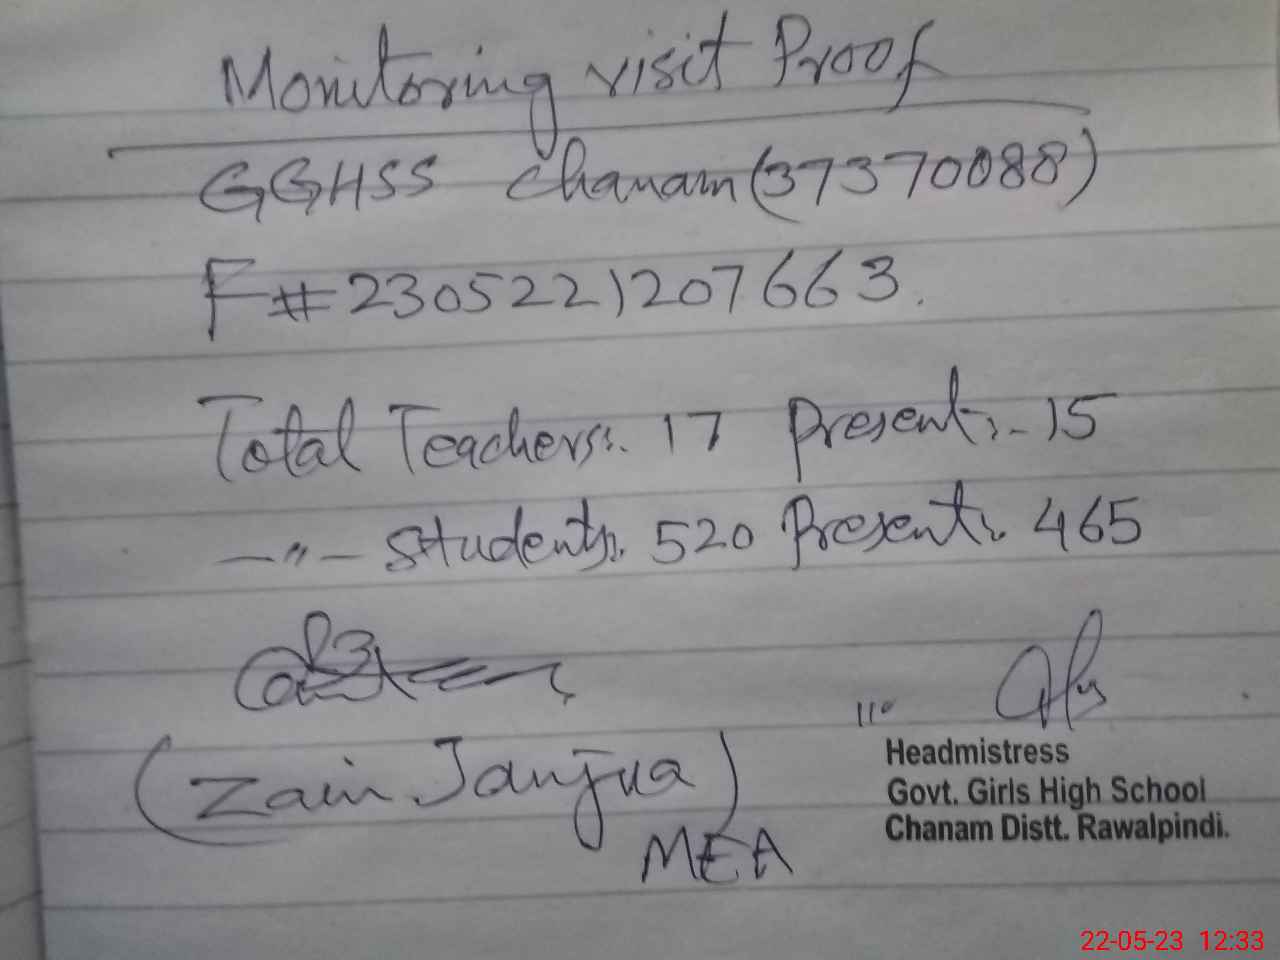 Monitoring visit Proof
GGHSS Chanam (37370088)
F# 2305221207663.
Total Teachers:. 17 Present:- 15
—"— Students:. 520 Present:. 465
(Zain Janjua)
MEA
Headmistress
Govt. Girls High School
Chanam Distt. Rawalpindi.
22-05-23 12:33